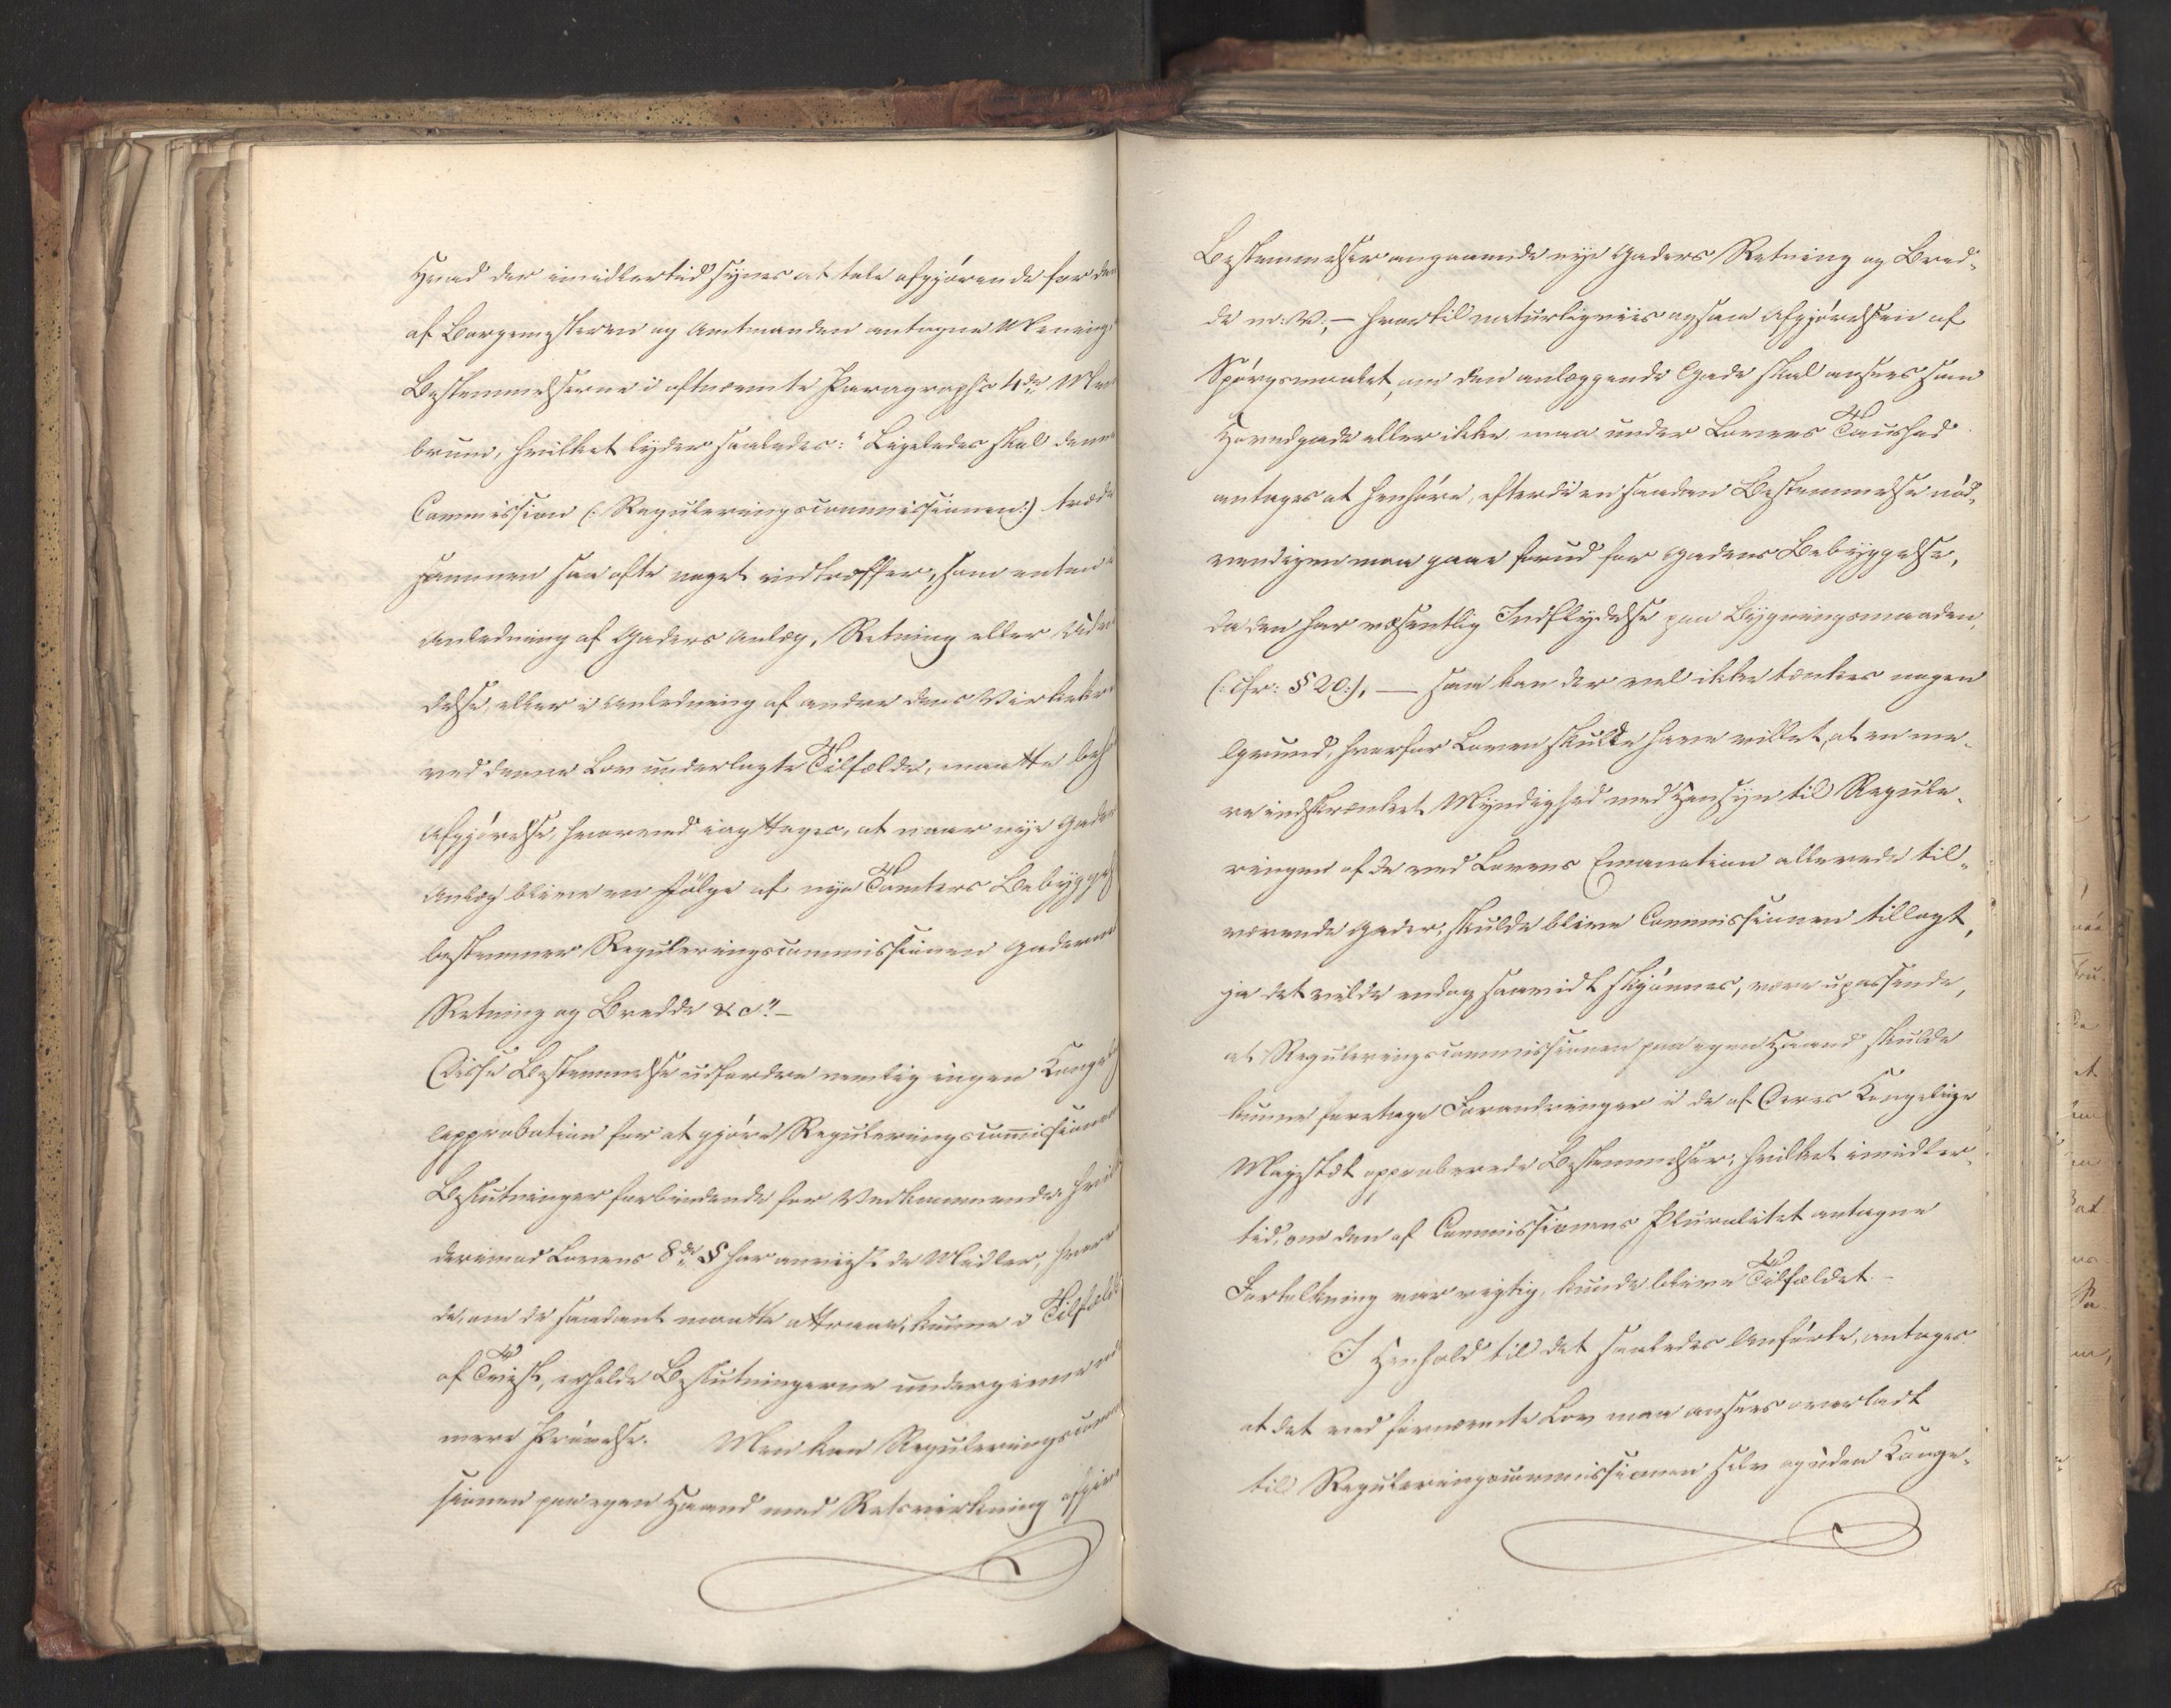 Hvad der imidlertid synes at tale afgjørende for den
af Borgemesteren og Amtmanden antagne Mening, er
Bestemmelserne i oftnævnte Paragraphs 4de Mem-
brum, hvilket lyder saaledes: "Ligeledes skal denne
Commission (: Reguleringscommissionen:) træde
sammen saa ofte noget indtræffer, som enten i
Anledning af Gaders Anlæg, Retning eller Udvi-
delse, eller i Anledning af andre dens Virkekreds
ved denne Lov underlagte Tilfælde, maatte behøve
Afgjørelse, hvorved iagttages, at naar nye Gaders
Anlæg blive en Følge af nye Tomters Bebyggelse
bestemmer Reguleringscommissionen Gadernes
Retning og Bredde &c." –
Disse Bestemmelse udfordre nemlig ingen Kongelig
Approbation for at gjøre Reguleringscomissionens
Beslutninger forbindende for Vedkommende, hvil
derimod Lovens 8de § har anviist de Midler, hvor
de, om de saadant maatte attraae, kunne i Tilfælde
af Tvist, erholde Beslutningerne undergivne nær-
mere Prøvelse. Men kan Reguleringscommis-
sionen paa egen Haand med Retsvirkning afgive
Bestemmelser angaaende nye Gaders Retning og Bred-
de m: V, – hvortil naturligviis ogsaa Afgjørelsen af
Spørgsmaalet, om den anlæggende Gade skal ansees som
Hovedgade eller ikke maa under Lovens Taushed
antages at henhøre, efterdi en saadan Bestemmelse nød-
vendigen maa gaae forud for Gadens Bebyggelse,
da den har væsentlig Indflydelse paa Bygningsmaaden,
(: cfr: § 20:), — saa kan der vel ikke tænkes nogen
Grund, hvorfor Loven skulde have villet, at en me-
re indskrænket Myndighed med Hensyn til Regule-
ringen af de ved Lovens Emanation allerede til-
værende Gader, skulde blive Commissionen tillagt,
ja det vilde endog saavidt skjønnes, være upassende,
at Reguleringscommissionen paa egen Haand skulde
kunne foretage Forandringer i de af Deres Kongelige
Majestæt approberede Bestemmelser, hvilket imidler-
tid, om den af Commissionens Pluralitet antagne
Fortolkning var rigtig, kunde blive Tilfældet. –
I Henhold til det saaledes Anførte, antages
at det ved fornævnte Lov maa ansees overladt
til Reguleringscommissionen selv og uden Konge-